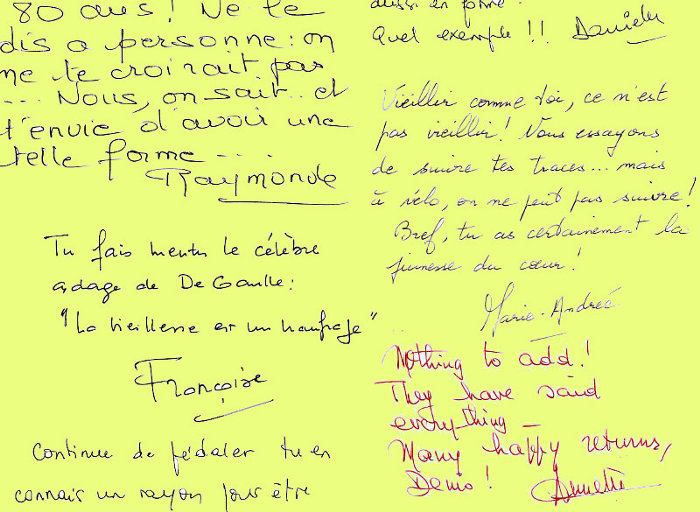 80 ans ! Ne le
dis a personne : on
ne te croirait pas
... Nous, on sait.. et
t'envie d'avoir une
telle forme ....
Raymonde
Tu fais mentir le célèbre
adage de De Gaulle :
"La vieillesse est un naufrage"
Françoise
Continue de pédaler tu en
connais un rayon pour être
aussi en forme.
Quel exemple !! Danielle
Vieillir comme toi, ce n'est
pas vieillir ! Nous essayons
de suivre tes traces... mais
à vélo, on ne peut pas suivre !
Bref, tu as certainement la
jeunesse du cœur !
Marie-Andrée
Nothing to add !
They have said
everything -
Many happy returns,
Denis ! Annette